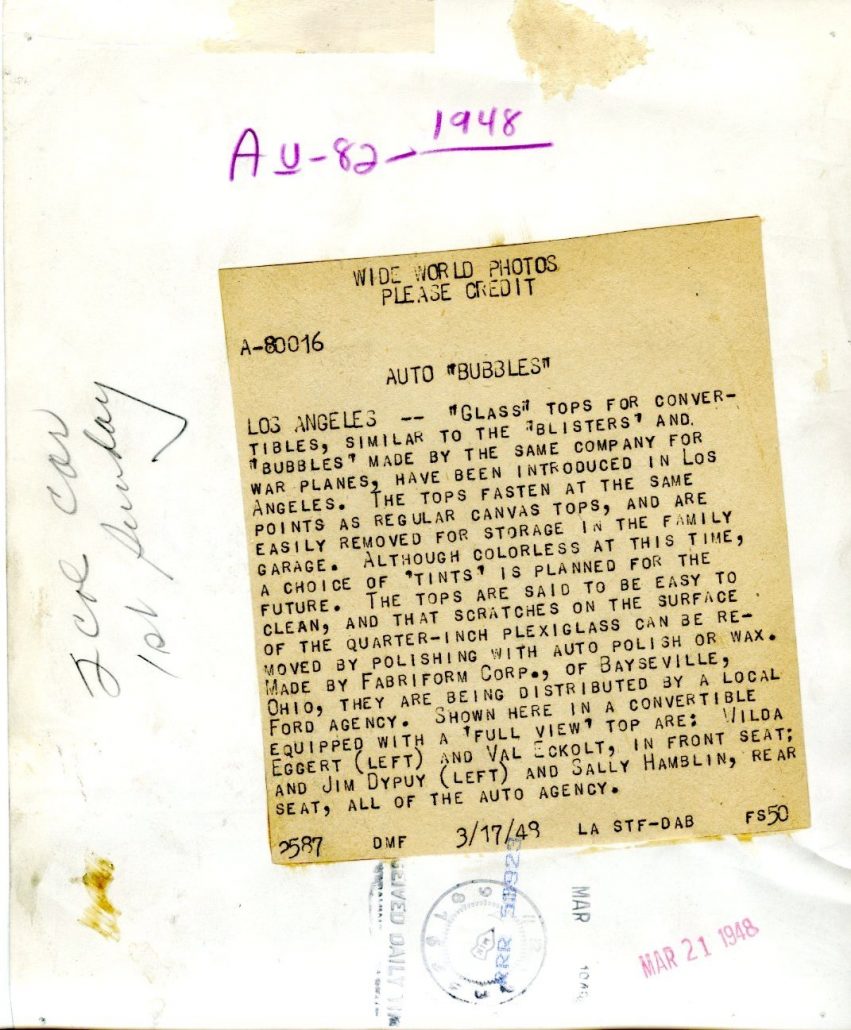 AU-82-1948
WIDE WORLD PHOTOS
PLEASE CREDIT
A-80016
AUTO "BUBBLES"
LOS ANGELES -- "GLASS" TOPS FOR CONVER-
TIBLES, SIMILAR TO THE "BLISTERS" AND
"BUBBLES" MADE BY THE SAME COMPANY FOR
WAR PLANES, HAVE BEEN INTRODUCED IN LOS
ANGELES. THE TOPS FASTEN AT THE SAME
POINTS AS REGULAR CANVAS TOPS, AND ARE
EASILY REMOVED FOR STORAGE IN THE FAMILY
GARAGE. ALTHOUGH COLORLESS AT THIS TIME,
A CHOICE OF "TINTS" IS PLANNED FOR THE
FUTURE. THE TOPS ARE SAID TO BE EASY TO
CLEAN, AND THAT SCRATCHES ON THE SURFACE
OF THE QUARTER-INCH PLEXIGLASS CAN BE RE-
MOVED BY POLISHING WITH AUTO POLISH OR WAX.
MADE BY FABRIFORM CORP., OF BAYSEVILLE,
OHIO, THEY ARE BEING DISTRIBUTED BY A LOCAL
FORD AGENCY. SHOWN HERE IN A CONVERTIBLE
EQUIPPED WITH A "FULL VIEW" TOP ARE: WILDA
EGGERT (LEFT) AND VAL ECKOLT, IN FRONT SEAT;
AND JIM DYPUY (LEFT) AND SALLY HAMBLIN, REAR
SEAT, ALL OF THE AUTO AGENCY.
2587 DMF 3/17/48 LA STF-DAB FS50
2 col car
1st Sunday
MAR
MAR 21 1948